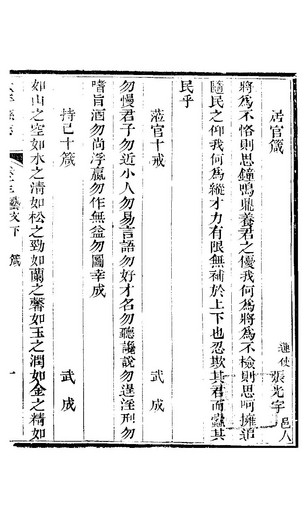 居官箴 運使張光宇邑人
將為不恪則思鐘鳴鼎養君之優我何為將為不檢則思呵擁追
隨民之仰我何為縱才力有限無補於上下也忍欺其君而蠹其
民乎
蒞官十戒 武成
勿慢君子勿近小人勿易言語勿好才名勿聽讒說勿逞淫刑勿
嗜旨酒勿尚浮麗勿作無益勿圖幸成
持己十箴 武成
如山之空如水之清如松之勁如蘭之馨如玉之潤如金之精如
藝文下 箴 一